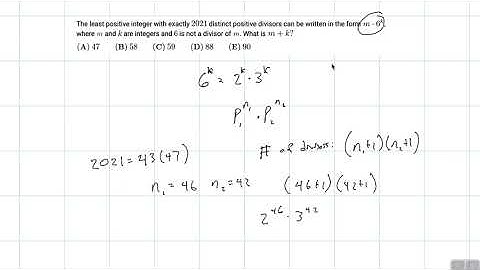 The least positive integer with exactly 2021 distinct positive divisors can be written in the form m · 6^k,
where m and k are integers and 6 is not a divisor of m. What is m + k?
(A) 47 (B) 58 (C) 59 (D) 88 (E) 90
6^k = 2^k · 3^k
P_1^{n_1} · P_2^{n_2}
# of divisors: (n_1+1)(n_2+1)
2021 = 43(47)
n_1 = 46 n_2 = 42 (46+1)(42+1)
2^{46} · 3^{42}